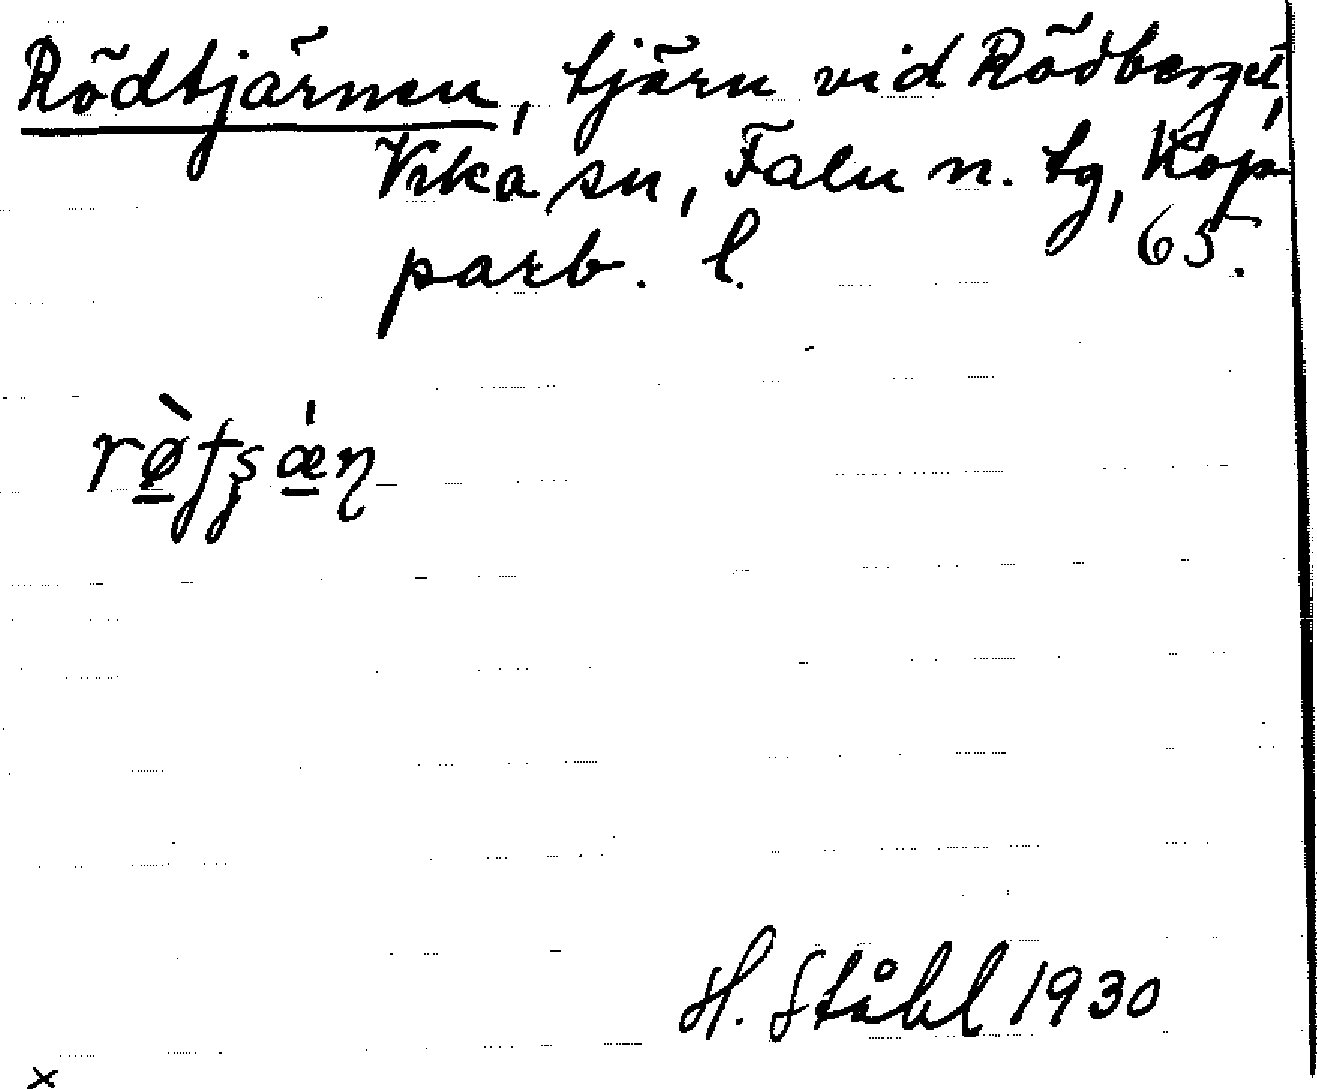 Rödtjärnen, tjärn vid Rödberget,
Vika sn, Falu n. tg, Kop-
parb. l. 65.
rø̀tʂǽɳ
H. Ståhl 1930
x